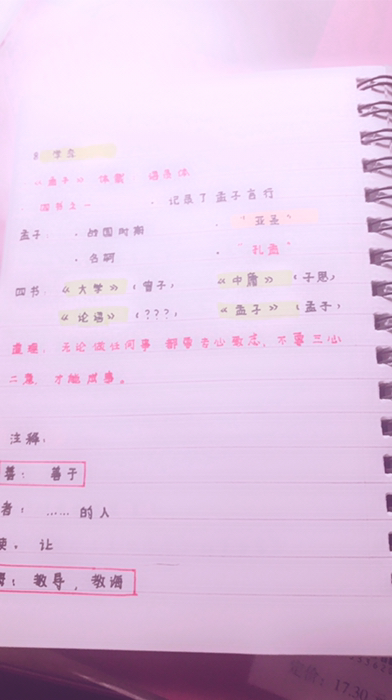 8 学弈
《孟子》 体裁 语录体
四书之一 · 记录了孟子言行
孟子: · 战国时期 · "亚圣"
· 名轲 · "孔孟"
四书: 《大学》(曾子) 《中庸》(子思)
《论语》(???) 《孟子》(孟子)
道理: 无论做任何事 都要专心致志, 不要三心
二意, 才能成事。
注释:
善: 善于
者: ……的人
使。让
诲: 教导, 教诲
定价: 17.30